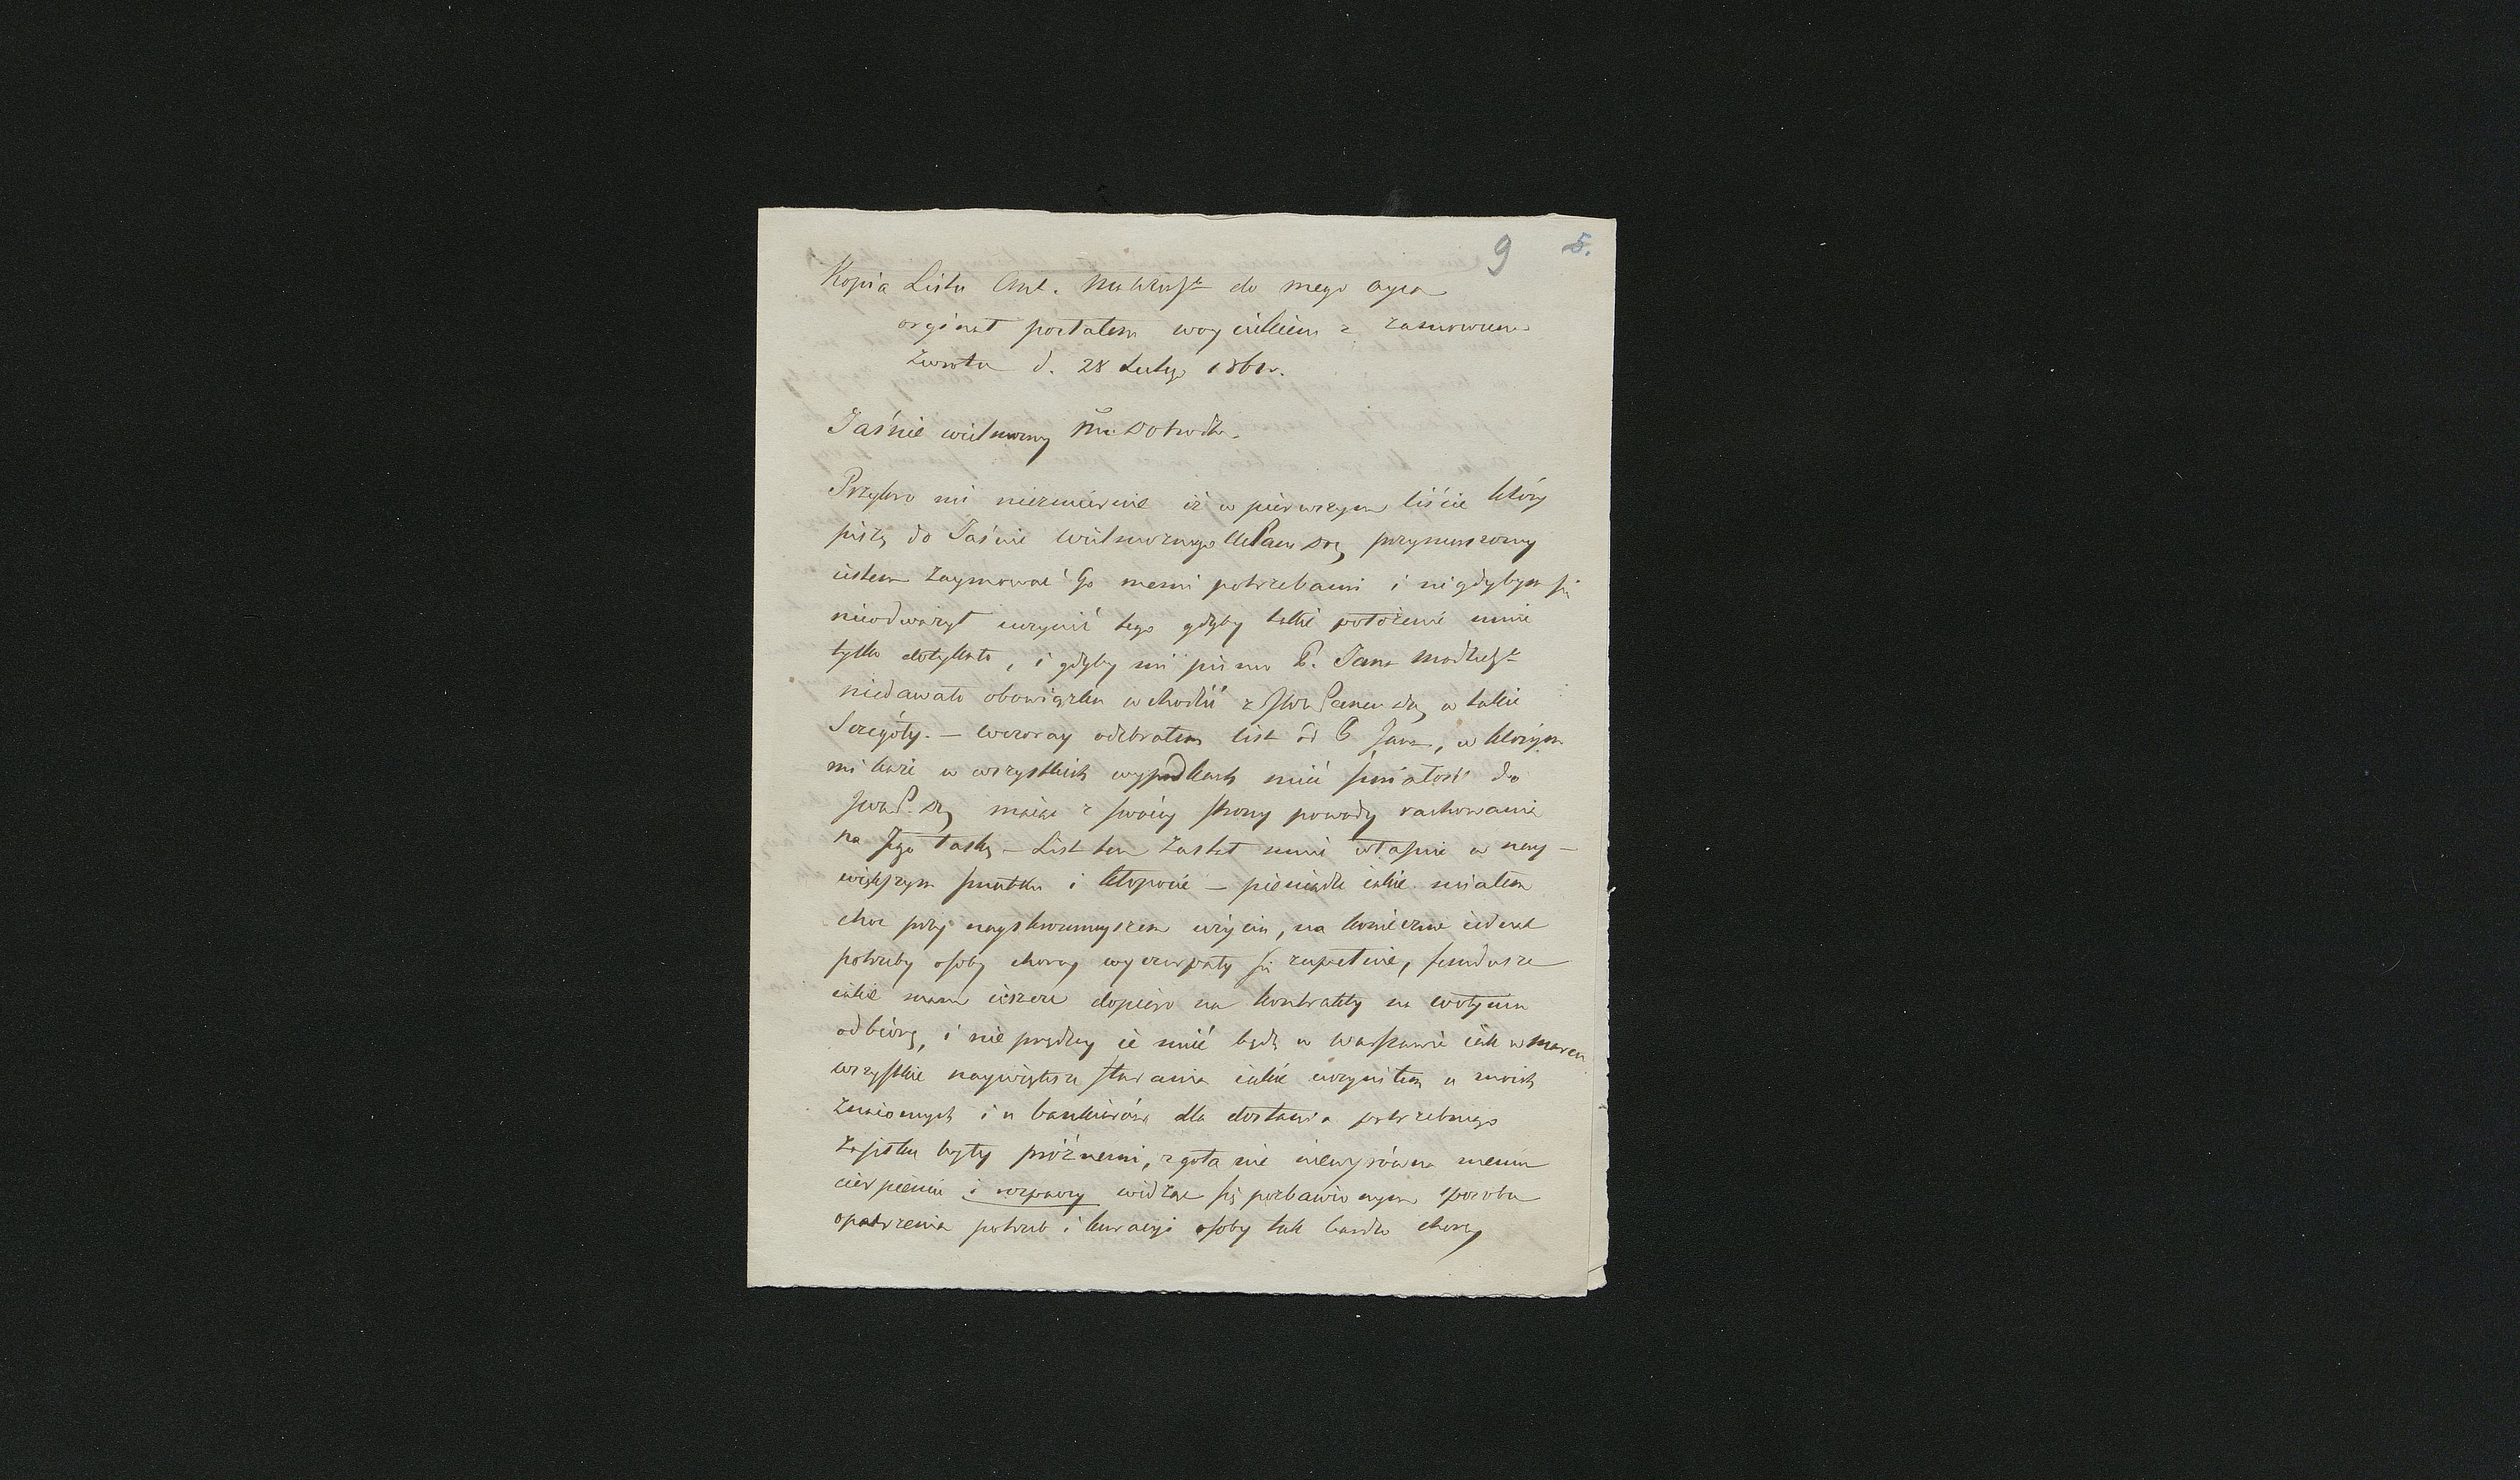 9 5.
Kopia Listu Ant. do mego oyca
orginał posłałem
zwrotu d. 28 Lutego 1861r.
Jaśnie wielmożny
Przykro mi niezmiernie iż w pierwszym liście który
piszę do Jaśnie Wielmożnego przymuszony
iestem zaymować Go memi potrzebami i nigdybym się
nieodważył uczynić tego gdyby takie położenie mnie
tylko dotykało, i gdyby mi pismo P. Jana
niedawało obowiązku wchodzić z w takie
Szegóły. – wczoray odebrałem list od P Jana, w którym
mi każe w wszystkich wypadkach mieć śmiałość do
maiąc z swoiey strony powody rachowania
na Jego łaskę – List ten zastał mnie właśnie w nay–
większym smutku i kłopocie – pieniądze iakie miałem
choc przy nayskromnyszem użyciu, na konieczne iednak
potrzeby osoby chorey wyczerpały się zupełnie, fundusze
iakie mam ieszcze dopiero na kontrakty na wołyniu
odbiorę, i nie prędzey ie mieć będę w Warszawie iak w marcu
wszystkie naywiększe starania iakie uczyniłem u moich
znaiomych i u bankierów dla dostania potrzebnego
zasiłku były próżnemi, zgoła nic niewyrówna memu
cierpieniu i rozpaczy widząc się pozbawionym sposobu
opatrzenia potrzeb i kuracyi osoby tak bardzo chorey